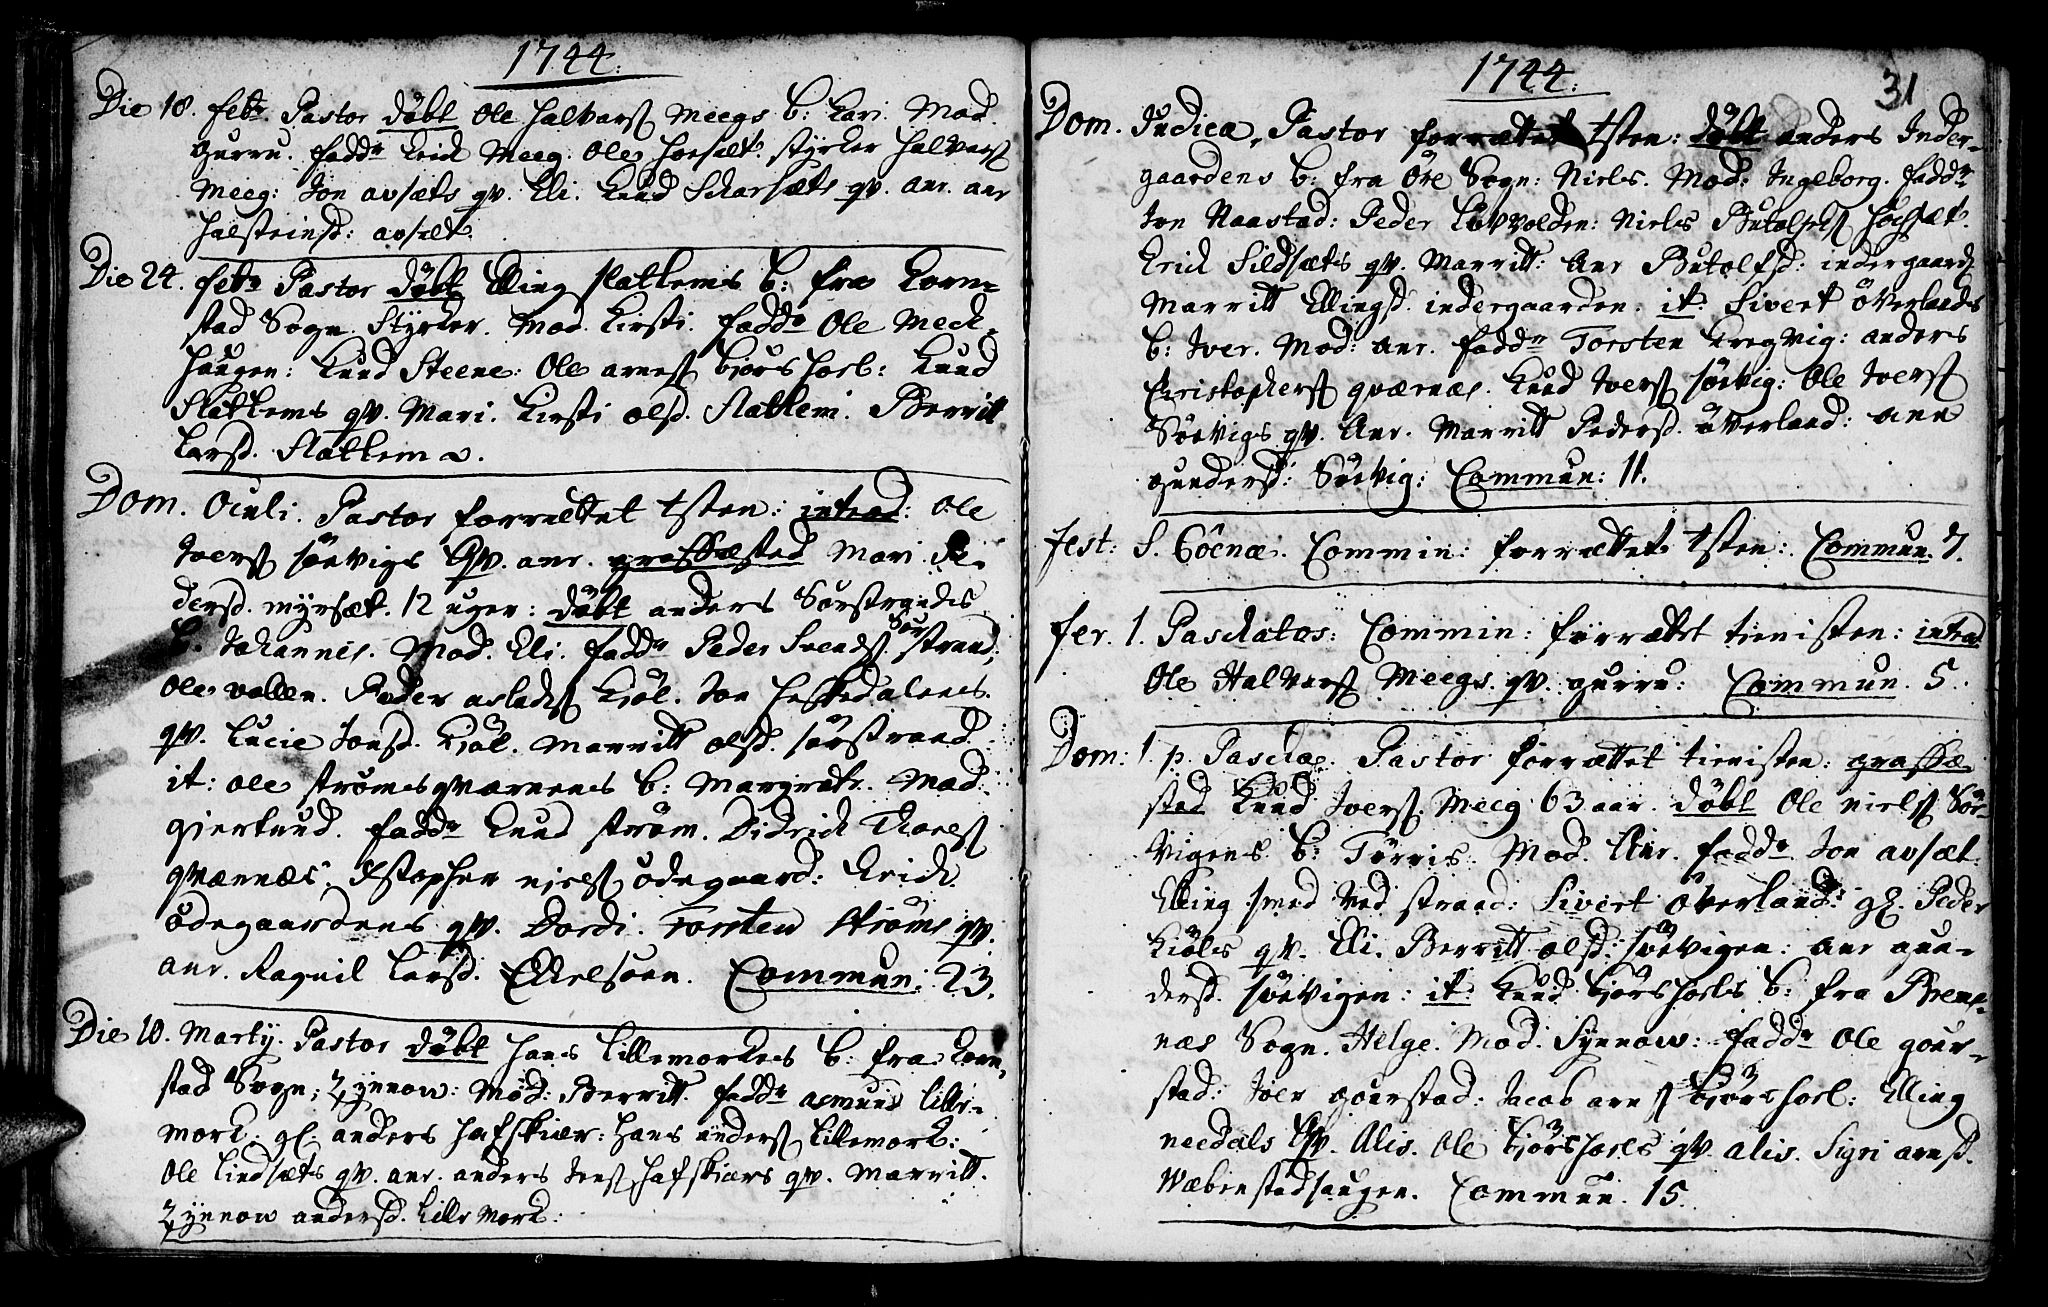 1744.
Die 18. febr. Pastor döbt Ole Halvarss Meegs b: Kari. Mod.
Gurru. fadd. Erich Meeg. Ole Horsæt. Styrker Halvers
Meeg: Jon avsæts qv. Eli. Knud Skarsæts qv. anr. anr
Halsteinsd: avsæt.
Die 24. febr. Pastor döbt Elling Slatlems b: fra Korn-
stad Sogn. Styrker. Mod. Kirsti. fadd. Ole Meek-
haugen: Knud Steene: Ole arness biörshorl: Knud
Slatlems qv. Mari. Kirsti olsd. Slatlem. Berritt
Larsd. Slatlem.
Dom. Oculi. Pastor forrættet tsten: introd: Ole
Ivers Söevigs qv. anr. græssested Mari Pe-
dersd. myrsæt. 12 uger: döbt anders Sörstrands
b. Johannis. Mod. Eli. fadd. Peder Svends Sörstrand;
Ole vollen. Peder aslachs Kiöl. Jon Heskedalens
qv. Lucie Jonsd. Kiöl. Marritt olsd. Sörstrand.
it: ole strömsqværnens b: Margrete. Mod.
giertrud. fadd. Knud ström. Didrich Thores
qværnæs. Xstopher niels ödegaard: Erich
ödegaardens qv. Dordi. Torsten Ströms qv.
anr. Ragnil Larsd. Eckelsöen. Commun: 23.
Die 10. Martij. Pastor döbt Hans Lillemorkens b: fra Korn-
stad Sogn: Zynnow: Mod: Berritt. fadd. asmund Lille-
mork. gl anders Hafskiær: Hans anders Lillemork:
Ole Lindsæts qv. anr. anders Jens Hafskiærs qv. Marritt.
Zynnow andersd. Lille Mork:
1744. 31
Dom. Judica. Pastor forrættet tsten: döbt anders Inder-
gaardens b: fra Öre Sogn: Niels. Mod: Ingeborg. fadd.
Jon Naastad: Peder Lövvolden: Niels Butolfs Högsæt.
Erich Sildsæts qv. Marritt: Anr Butolfsd: indergaard
Marritt Ellingsd. indergaarden. it: Sivert överlands
b: Iver. Mod: anr. fadd. Torsten Kregvig: anders
Christophers qværnæs. Knud Ivers Söevig: Ole Ivers
Söevigs qv. Anr. Marritt Pedersd. överland: ann
gundersd: Söevig: Commun: 11.
fest: S. Coenæ. Commin: forrættet tsten: Commun. 7.
fer. 1. Paschatos: Commin: forrættet tienisten: introd
Ole Halvers Meegs. qv. gurru: Commun. 5.
Dom: 1. p. Pascha. Pastor forrættet tienisten: græsse-
sted Knud Ivers Meeg 63 aar. döbt Ole niels Söe-
vigens b: Törris: Mod. Anr. fadd. Jon avsæt.
Elling smed ved strand: Sivert överland: gl. Peder
Kiöls qv. Eli. Berritt olsd: Söevigen: anr gun-
dersd. Söevigen: it: Knud biörshorls b: fra Brems-
næs Sogn. Helge. Mod. Synnow: fadd. Ole gour-
stad: Iver gourstad: Jacob arns biörshorl: Elling
needals qv. Alis. Ole biörshorls qv. alis. Siri arnsd.
Wæbenstadhaugen. Commun. 15.